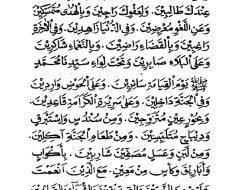 عِنْدَكَ طَالِبِيْنَ وَلِعَفْوِكَ رَاجِيْنَ وَبِالْهُدَى مُتَمَسِّكِيْنَ
وَعَنِ اللَّغْوِ مُعْرِضِيْنَ وَفِي الدُّنْيَا زَاهِدِيْنَ وَفِي الْآخِرَةِ
رَاغِبِيْنَ وَبِالْقَضَاءِ رَاضِيْنَ وَبِالنَّعْمَاءِ شَاكِرِيْنَ
وَعَلَى الْبَلَاءِ صَابِرِيْنَ وَتَحْتَ لِوَاءِ سَيِّدِنَا مُحَمَّدٍ
ﷺ يَوْمَ الْقِيَامَةِ سَائِرِيْنَ وَعَلَى الْحَوْضِ وَارِدِيْنَ
وَفِي الْجَنَّةِ دَاخِلِيْنَ وَعَلَى سَرِيْرَةِ الْكَرَامَةِ قَاعِدِيْنَ
وَبِحُوْرٍ عِيْنٍ مُتَزَوِّجِيْنَ وَمِنْ سُنْدُسٍ وَإِسْتَبْرَقٍ
وَدِيْبَاجٍ مُتَلَبِّسِيْنَ وَمِنْ طَعَامِ الْجَنَّةِ آكِلِيْنَ
وَمِنْ لَبَنٍ وَعَسَلٍ مُصَفَّيْنِ شَارِبِيْنَ بِأَكْوَابٍ
وَأَبَارِيْقَ وَكَأْسٍ مِنْ مَعِيْنٍ مَعَ الَّذِيْنَ أَنْعَمْتَ